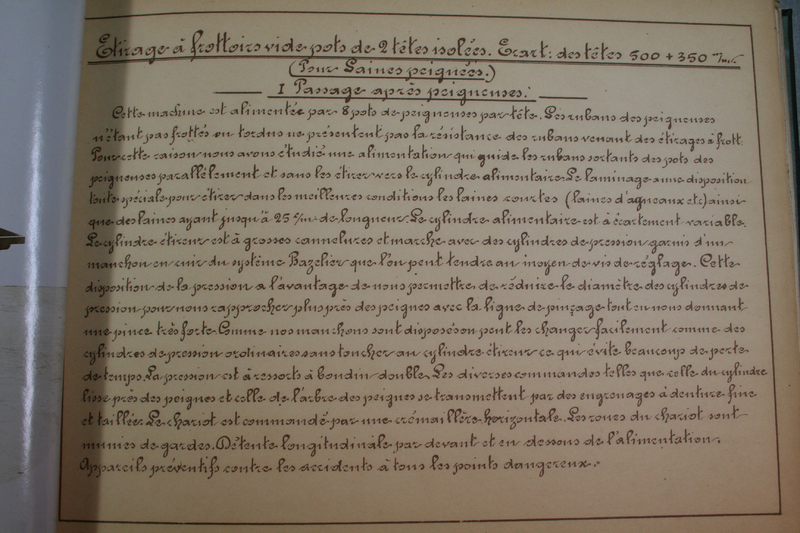 Etirage à frottoirs vide pots de 2 têtes isolées. Ecart: des têtes 500 + 350 m/m.
(Pour Laines peignées.)
I Passage après peigneuses.
Cette machine est alimentée par 8 pots de peigneuses par tête. Les rubans des peigneuses
n'étant pas frottés ou tordus ne présentent pas la résistance des rubans venant des étirages à frott.
Pour cette raison nous avons étudié une alimentation qui guide les rubans sortants des pots des
peigneuses parallèlement et sans les étirer vers le cylindre alimentaire. Le laminage a une disposition
toute spéciale pour étirer dans les meilleures conditions les laines courtes (laines d'agneaux etc) ainsi
que des laines ayant jusqu'à 25 c/m de longueur. Le cylindre alimentaire est à écartement variable.
Le cylindre étireur est à grosses cannelures et marche avec des cylindres de pression garnis d'un
manchon en cuir du système Bazelier que l'on peut tendre au moyen de vis de réglage. Cette
disposition de la pression a l'avantage de nous permettre de réduire le diamètre des cylindres de
pression pour nous rapprocher plus près des peignes avec la ligne de pinçage tout en nous donnant
une pince très forte. Comme nos manchons sont disposés on peut les changer facilement comme des
cylindres de pression ordinaires sans toucher au cylindre étireur ce qui évite beaucoup de perte
de temps. La pression est à ressorts à boudin double. Les diverses commandes telles que celle du cylindre
lisse près des peignes et celle de l'arbre des peignes se transmettent par des engrenages à denture fine
et taillée. Le chariot est commandé par une crémaillère horizontale. Les roues du chariot sont
munies de gardes. Détente longitudinale par devant et en dessous de l'alimentation.
Appareils préventifs contre les accidents à tous les points dangereux.